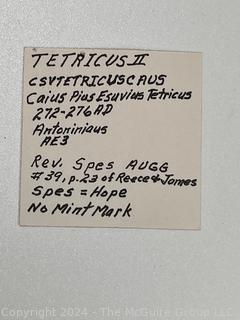 TETRICUS II
CSVTETRICUSCAUS
Caius Pius Esuvius Tetricus
272-276 AD
Antoniniaus
AE3
Rev. Spes AUGG
#39, p.23 of Reece & James
Spes = Hope
No Mint Mark
Copyright ©2024 - The McGuire Group USA